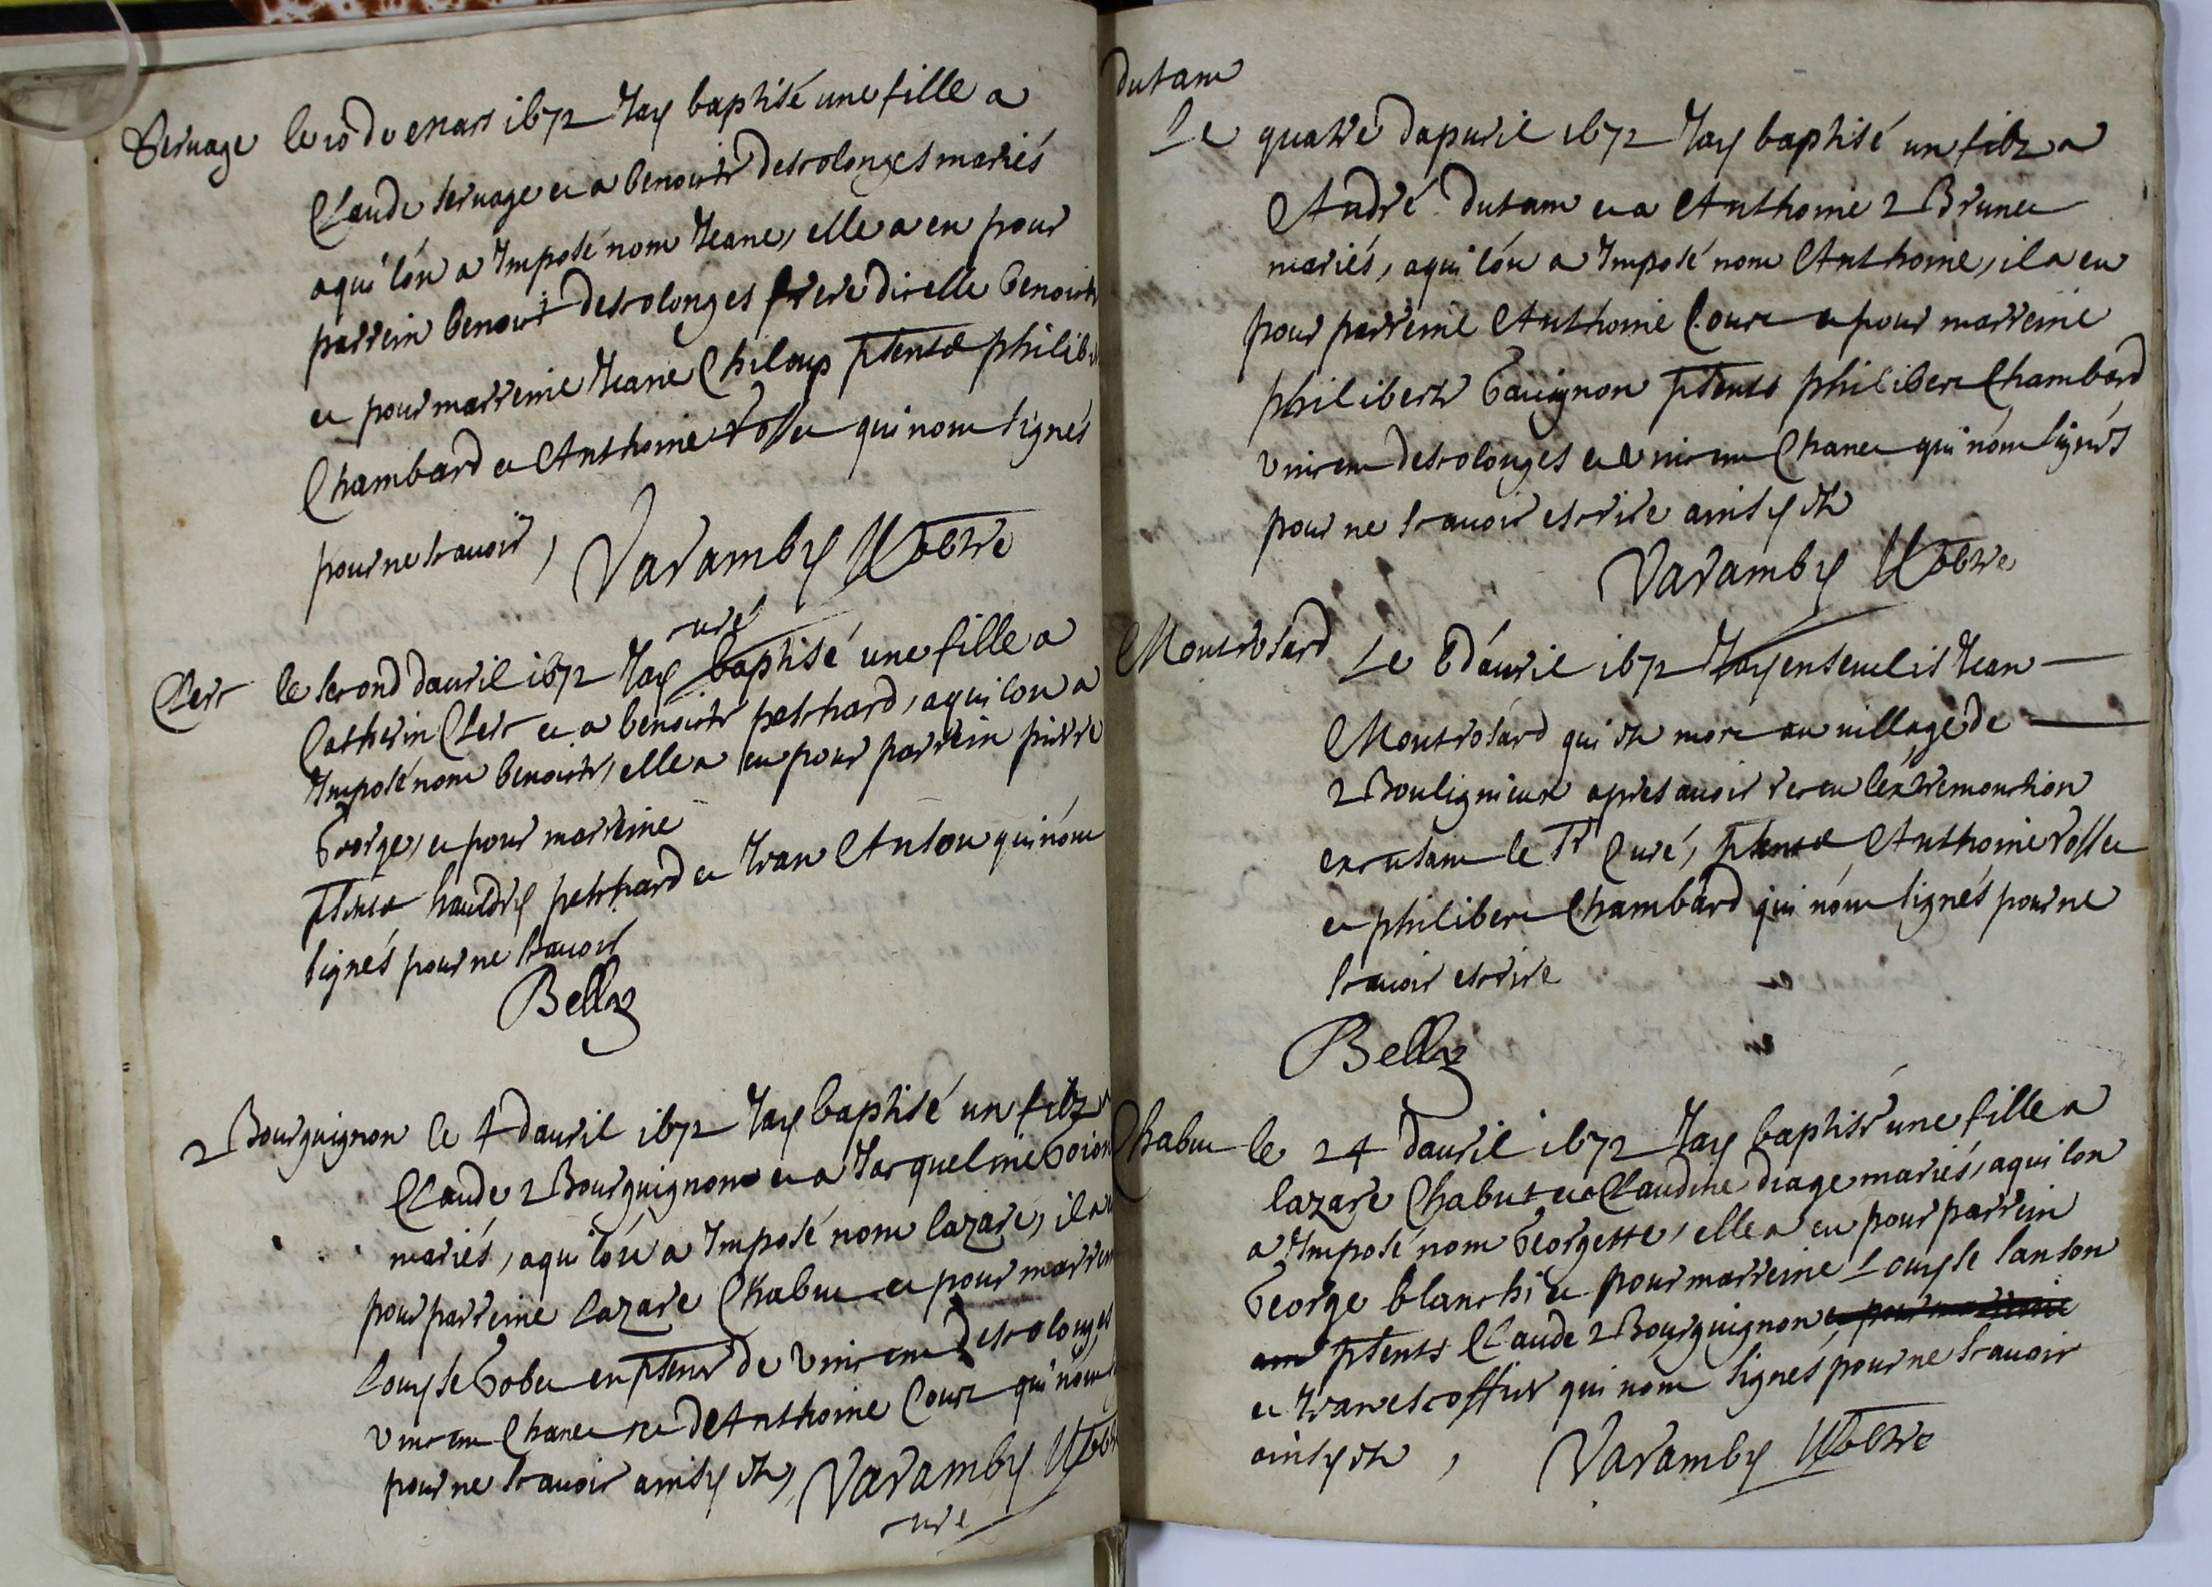 Servage le 10 de mars 1672 Jay baptisé une fille a
Claude servage et a benoiste descolonges mariés
a qui lón a Imposé nom Jeane, elle a eu pour
parrein benoist descolonges frere dicelle benoiste
et pour marreine Jeane Chiloup pñts philibert
Chambard et Anthoine rosset qui nont signés
pour ne scavoir, Varamby pbtre
curé
Clerc le second davril 1672 Jay baptisé une fille a
Catherin Clerc et a benoiste peschard, a qui lon a
Imposé nom benoiste, elle a eu pour parrein pierre
George, et pour marreine
pñts hauldry peschard et Jean Anton qui nont
signés pour ne scavoir
Belly
Bourguignon le 4 davril 1672 Jay baptisé un filz a
Claude Bourguignon et a Jacqueline
mariés, a qui lón a Imposé nom lazare, il a
pour parreine lazare Chabut et pour marreine
louyse Gobet en pñce de vincent descolonges
vincent Chanet et dAnthoine Cour qui nont
pour ne scavoir ainsy est, Varamby pbtre
curé
dutam
Le quatre dapvril 1672 Jay baptisé un filz a
André dutam et a Anthoine Brunet
mariés, a qui lón a Imposé nom Anthoine, il a eu
pour parreine Anthoine Cour et pour marreine
philiberte Gavignon pñts philibert Chambard
vincent descolonges et vincent Chanet qui nont signés
pour ne scavoir escrire ainsy est
Varamby pbtre
Montrosard Le 6 dávril 1672 Jay ensevelis Jean
Montrosard qui est mort au village de
Bouligneux apres avoir receu lextremonction
excusant le Sr Curé, pñts Anthoine rosset
et philibert Chambard qui nont signés pour ne
scavoir escrire
Belly
Chabut le 24 davril 1672 Jay baptisé une fille a
lazare Chabut et a Claudine diage mariés, a qui lon
a Imposé nom Georgette, elle a eu pour parrein
George blanchi et pour marreine Louyse lanson
pñts Claude Bourguignon et pour marreine
et Jean escoffier qui nont signés pour ne scavoir
ainsy est, Varamby pbtre